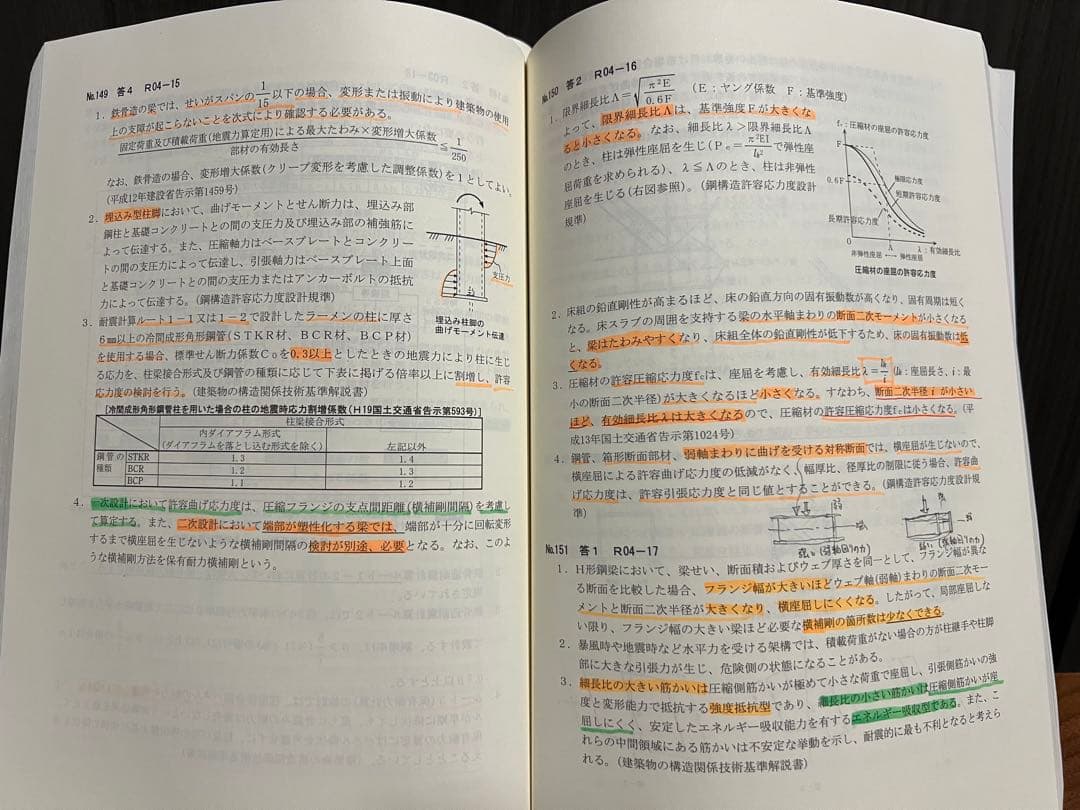 No.149 答4 R04-15
1. 鉄骨造の梁では、せいがスパンの1/15以下の場合、変形または振動により建築物の使用
上の支障が起こらないことを次式により確認する必要がある。
固定荷重及び積載荷重(地震力算定用)による最大たわみ×変形増大係数/部材の有効長さ≦1/250
なお、鉄骨造の場合、変形増大係数(クリープ変形を考慮した調整係数)を1としてよい。
(平成12年建設省告示第1459号)
2. 埋込み型柱脚において、曲げモーメントとせん断力は、埋込み部
鋼柱と基礎コンクリートとの間の支圧力及び埋込み部の補強筋に
よって伝達する。また、圧縮軸力はベースプレートとコンクリー
トの間の支圧力によって伝達し、引張軸力はベースプレート上面
と基礎コンクリートとの間の支圧力またはアンカーボルトの抵抗
力によって伝達する。(鋼構造許容応力度設計規準)
支圧力
埋込み柱脚の
曲げモーメント伝達
3. 耐震計算ルート1-1又は1-2で設計したラーメンの柱に厚さ
6㎜以上の冷間成形角形鋼管(STKR材、BCR材、BCP材)
を使用する場合、標準せん断力係数C₀を0.3以上としたときの地震力により柱に生じ
る応力を、柱梁接合形式及び鋼管の種類に応じて下表に掲げる倍率以上に割増し、許容
応力度の検討を行う。(建築物の構造関係技術基準解説書)
[冷間成形角形鋼管柱を用いた場合の柱の地震時応力割増係数(H19国土交通省告示第593号)]
柱梁接合形式
内ダイアフラム形式
(ダイアフラムを落とし込む形式を除く) 左記以外
鋼管の種類 STKR 1.3 1.4
BCR 1.2 1.3
BCP 1.1 1.2
4. 一次設計において許容曲げ応力度は、圧縮フランジの支点間距離(横補剛間隔)を考慮し
て算定する。また、二次設計において端部が塑性化する梁では、端部が十分に回転変形
するまで横座屈を生じないような横補剛間隔の検討が別途、必要となる。なお、このよ
うな横補剛方法を保有耐力横補剛という。
No.150 答2 R04-16
1. 限界細長比Λ=√π²E/0.6F (E:ヤング係数 F:基準強度)
よって、限界細長比Λは、基準強度Fが大きくな
ると小さくなる。なお、細長比λ>限界細長比Λ
のとき、柱は弾性座屈を生じ(Pₑ=π²EI/lₖ²で弾性座
屈荷重を求められる)、λ≦Λのとき、柱は非弾性
座屈を生じる(右図参照)。(鋼構造許容応力度設計
規準)
f꜀:圧縮材の座屈の許容応力度
F
0.6F
極限応力度
短期許容応力度
長期許容応力度
0
Λ
λ:有効細長比
非弾性座屈 弾性座屈
圧縮材の座屈の許容応力度
2. 床組の鉛直剛性が高まるほど、床の鉛直方向の固有振動数が高くなり、固有周期は短く
なる。床スラブの周囲を支持する梁の水平軸まわりの断面二次モーメントが小さくなる
と、梁はたわみやすくなり、床組全体の鉛直剛性が低下するため、床の固有振動数は低
くなる。
3. 圧縮材の許容圧縮応力度f꜀は、座屈を考慮し、有効細長比λ=lₖ/i(lₖ:座屈長さ、i:最
小の断面二次半径)が大きくなるほど小さくなる。すなわち、断面二次半径iが小さい
ほど、有効細長比λは大きくなるので、圧縮材の許容圧縮応力度f꜀は小さくなる。(平
成13年国土交通省告示第1024号)
4. 鋼管、箱形断面部材、弱軸まわりに曲げを受ける対称断面では、横座屈が生じないので、
横座屈による許容曲げ応力度の低減がなく、幅厚比、径厚比の制限に従う場合、許容曲
げ応力度は、許容引張応力度と同じ値とすることができる。(鋼構造許容応力度設計規
準)
No.151 答1 R04-17
1. H形鋼梁において、梁せい、断面積およびウェブ厚さを同一として、フランジ幅が異な
る断面を比較した場合、フランジ幅が大きいほどウェブ軸(弱軸)まわりの断面二次モー
メントと断面二次半径が大きくなり、横座屈しにくくなる。したがって、局部座屈しな
い限り、フランジ幅の大きい梁ほど必要な横補剛の箇所数は少なくできる。
2. 暴風時や地震時など水平力を受ける架構では、積載荷重がない場合の方が柱継手や柱脚
部に大きな引張力が生じ、危険側の状態になることがある。
3. 細長比の大きい筋かいは圧縮側筋かいが極めて小さな荷重で座屈し、引張側筋かいの強
度と変形能力で抵抗する強度抵抗型であり、細長比の小さい筋かいは圧縮側筋かいが座
屈しにくく、安定したエネルギー吸収能力を有するエネルギー吸収型である。また、こ
れらの中間領域にある筋かいは不安定な挙動を示し、耐震的に最も不利となると考えら
れる。(建築物の構造関係技術基準解説書)